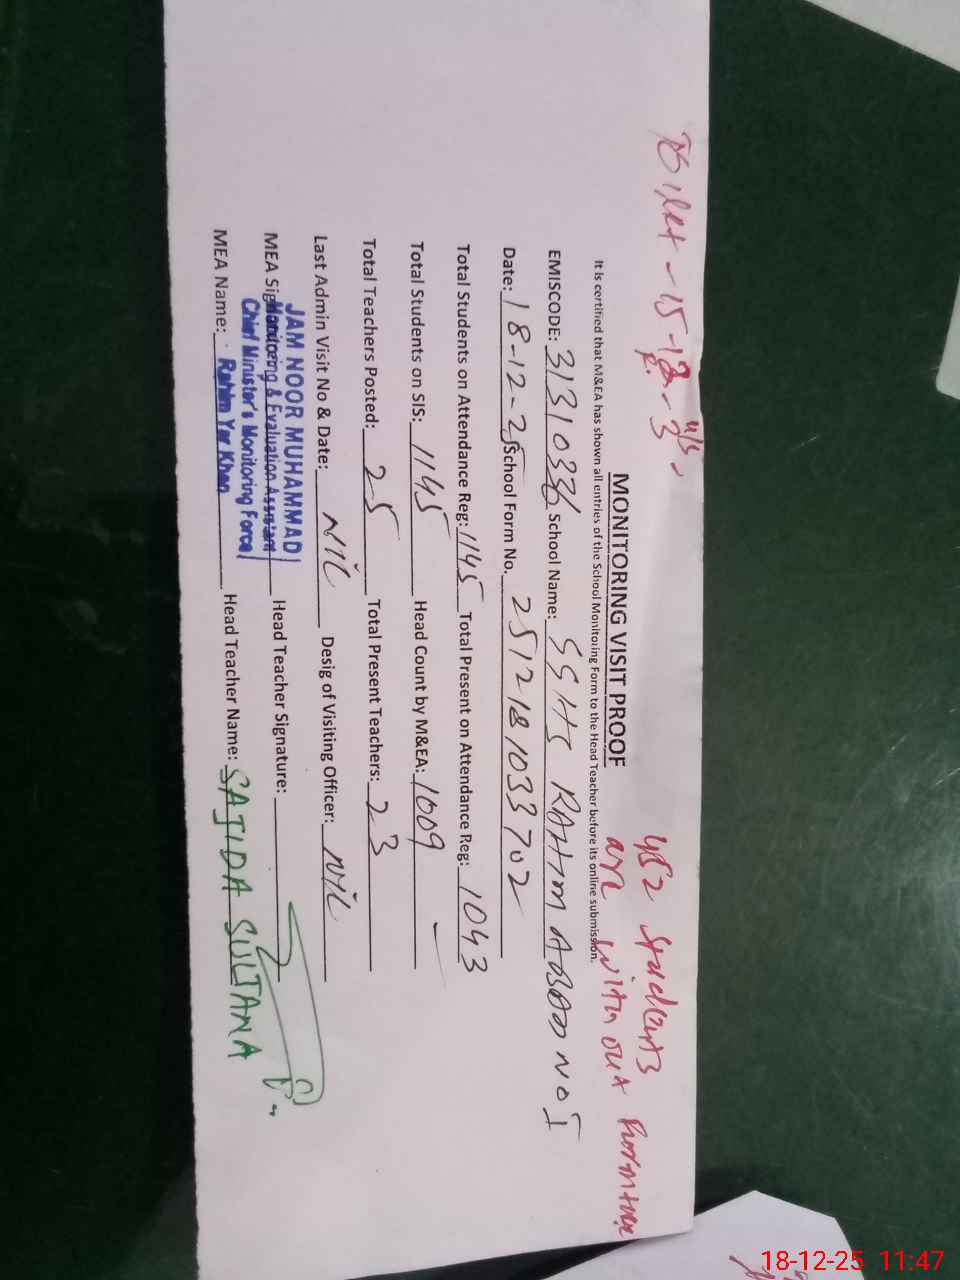 Toilet - 15 - 12 - 3 u/s.
452 students are without furniture
MONITORING VISIT PROOF
It is certified that M&EA has shown all entries of the School Monitoring Form to the Head Teacher before its online submission.
EMISCODE: 31310336 School Name: GGHS RAHIM ABAD NO I
Date: 18-12-25 School Form No. 2512181033702
Total Students on Attendance Reg: 1145 Total Present on Attendance Reg: 1043
Total Students on SIS: 1145 Head Count by M&EA: 1009
Total Teachers Posted: 25 Total Present Teachers: 23
Last Admin Visit No & Date: NIL Desig of Visiting Officer: NIL
JAM NOOR MUHAMMAD
MEA Sig Monitoring & Evaluation Assistant Head Teacher Signature:
Chief Minister's Monitoring Force
MEA Name: Rahim Yar Khan Head Teacher Name: SAJIDA SULTANA
18-12-25 11:47